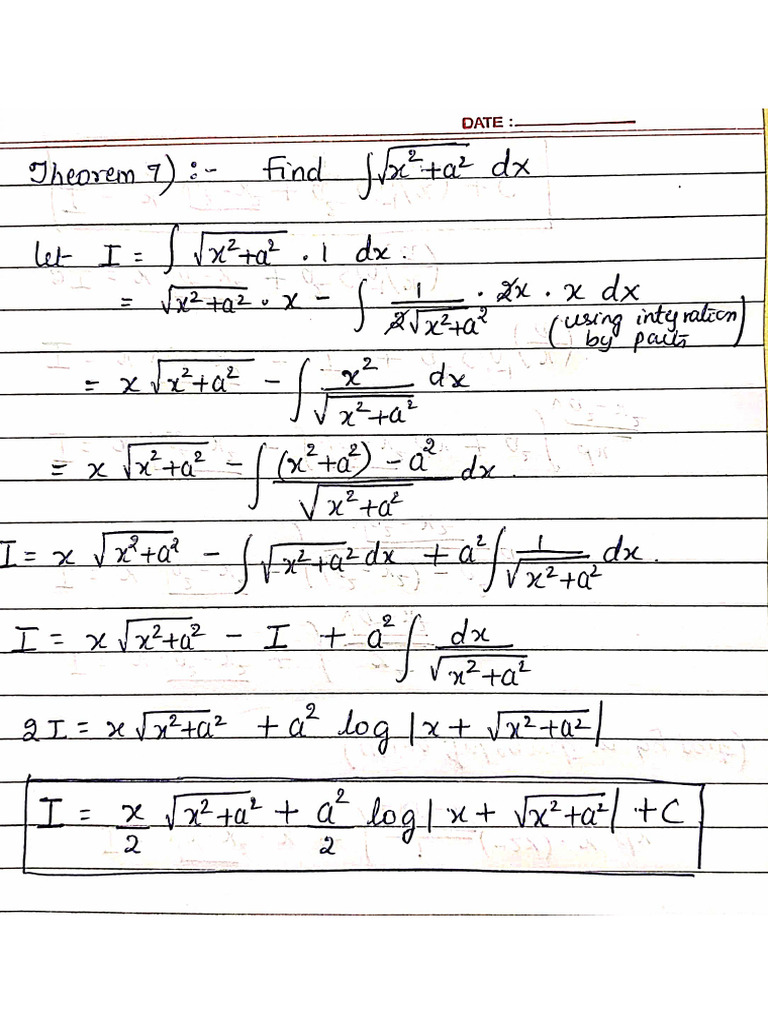 DATE :
Theorem 7) :- Find ∫√x²+a² dx
let I = ∫ √x²+a² . 1 dx.
= √x²+a² . x - ∫ 1/2√x²+a² . 2x . x dx
(using integration by parts)
= x √x²+a² - ∫ x²/√x²+a² dx
= x √x²+a² - ∫ (x²+a²) - a²/√x²+a² dx.
I = x √x²+a² - ∫√x²+a² dx + a² ∫ 1/√x²+a² dx.
I = x√x²+a² - I + a² ∫ dx/√x²+a²
2I = x√x²+a² + a² log |x + √x²+a²|
I = x/2 √x²+a² + a²/2 log| x + √x²+a²| + C